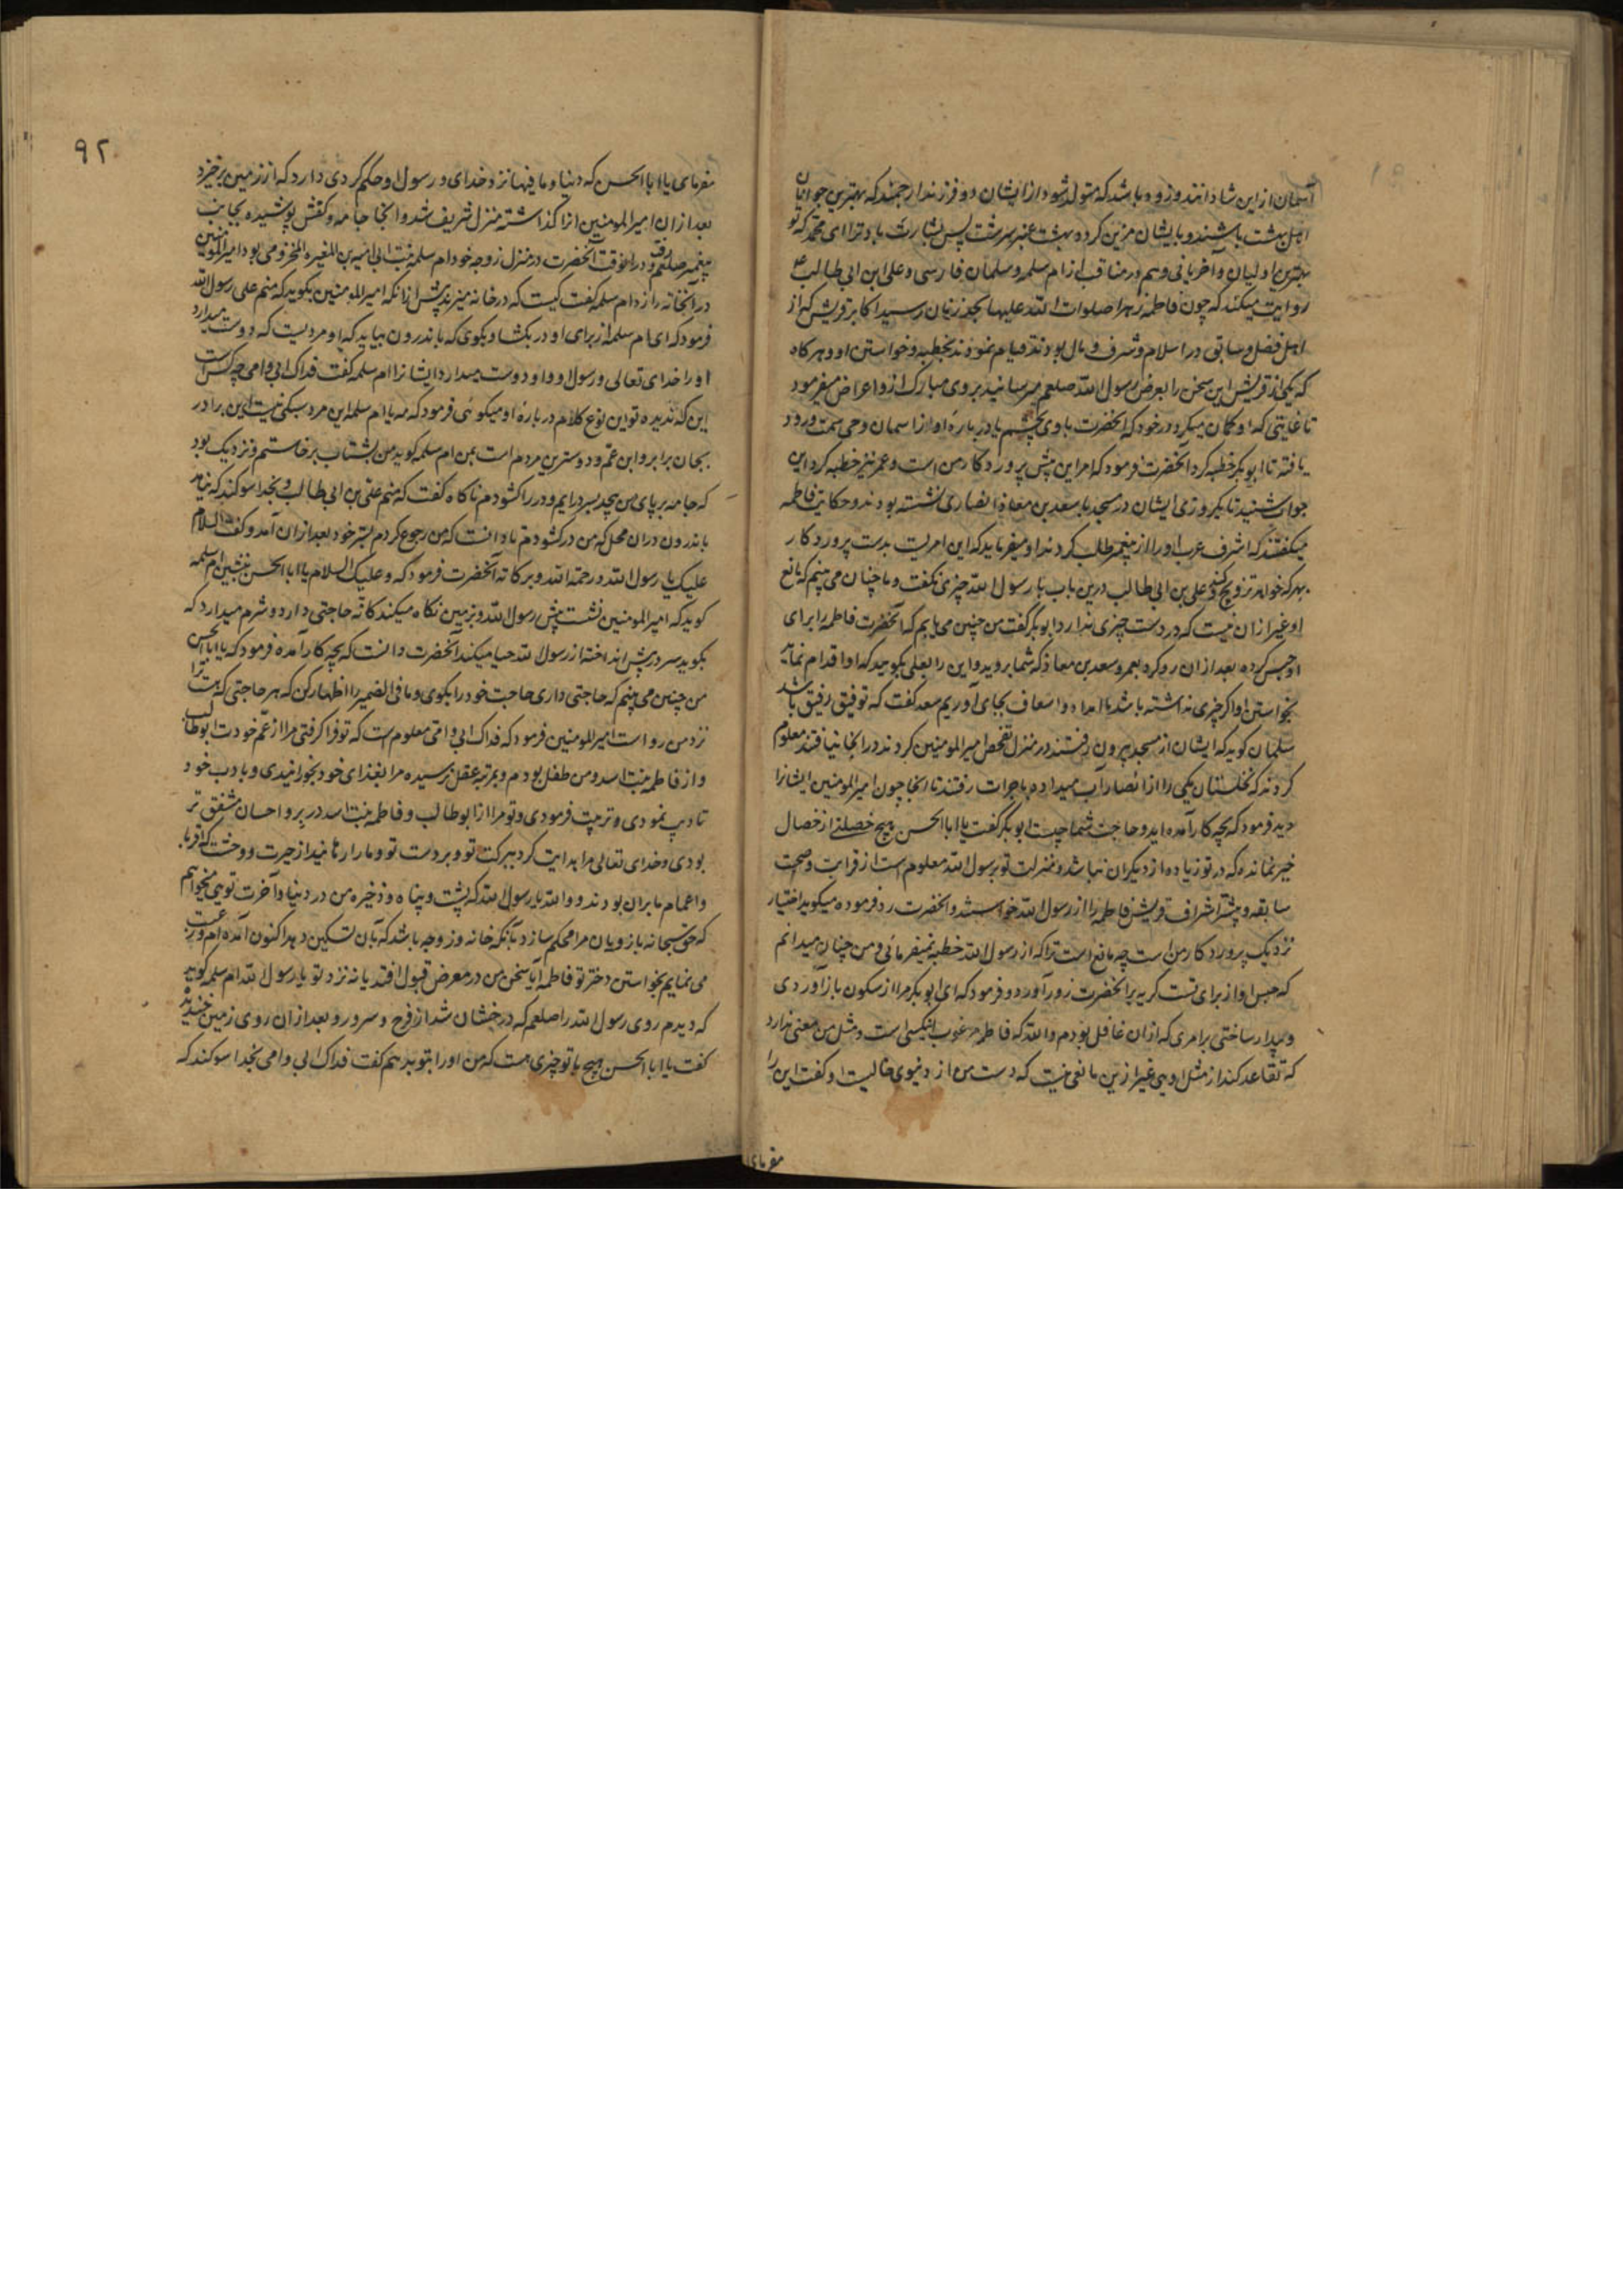 آسمان ازین شادانند و زود باشد که متولد شود از ایشان دو فرزند ارجمند که بهترین جوانان
اهل بهشت باشند و بایشان مزین کرده بهشت عنبر سرشت پس بشارت باد ترا ای محمد که تو
بهترین اولیان و آخریانی و هم در مناقب از ام سلمه و سلمان فارسی و علی ابن ابی طالب ع
روایت میکنند که چون فاطمه زهرا صلوات الله علیها بحد زنان رسید اکابر قریش که از
اهل فضل و سابق در اسلام و شرف و مال بودند قیام نمودند بخطبه و خواستن او و هر کاه
که یکی از قریش این سخن را بعرض رسول الله صلعم میرسانید بروی مبارک ازو اعراض میفرمود
تا غایتی که او کمان میکرد در خود که آنحضرت با وی بخشم یا در باره او از آسمان وحی سمت ورود
یافته تا ابوبکر خطبه کرد آنحضرت فرمود که امر این پیش پروردکار من است و عمر نیز خطبه کرد این
جواب شنید تا یکروزی ایشان در مسجد با سعد بن معاذ انصاری نشسته بودند و حکایت فاطمه
میکفتند که اشرف عرب او را از پیغمبر طلب کردند او میفرماید که این امریست بدست پروردکار
بهر که خواهد تزویج کند و علی بن ابی طالب درین باب با رسول الله چیزی نکفت و ما چنان می بینم که مانع
او غیر از ان نیست که در دست چیزی ندارد ابوبکر گفت من چنین می یابم که آنحضرت فاطمه را برای
او حبس کرده بعد از ان رو کرد بعمر و سعد بن معاذ که شما بروید و این را بعلی بکویید که او اقدام نماید
بخواستن او اکر چیزی نداشته باشد ما امداد و اسعاف بجای آوریم سعد کفت که توفیق رفیق باشد
سلمان کوید که ایشان از مسجد بیرون رفتند در منزل تفحص امیر المومنین کردند در انجا نیافتند معلوم
کردند که نخلستان یکی را از انصار آب میداده باجرات رفتند تا انجا چون امیر المومنین ایشانرا
دید فرمود که بچه کار آمده اید و حاجت شما چیست ابوبکر گفت یا ابا الحسن هیچ خصلتی از خصال
خیر نمانده که در تو زیاده از دیگران نباشد و منزلت تو برسول الله معلوم است از قرابت و صحبت
سابقه و پیشتر اشراف قریش فاطمه را از رسول الله خواستند و آنحضرت رد فرموده میکوید اختیار
نزدیک پروردکار من است چه مانع است ترا که از رسول الله خطبه نمیفرمائی و من چنان میدانم
که حبس او از برای تست کریه بر آنحضرت زور آورد و فرمود که ای ابوبکر مرا از سکون باز آوردی
و بیدار ساختی بر امری که از ان غافل بودم والله که فاطمه مرغوب نیکسی است و مثل من معنی ندارد
که تقاعد کند از مثل اویی غیر ازین مانعی نیست که دست من از دنیوی خالیست او کفت این را
مفرمای
۹۲
مفرمای یا ابا الحسن که دنیا و ما فیها نزد خدای و رسول او حکم کردی دارد که از زمین برخیزد
بعد از ان امیر المومنین انرا کذاشته منزل شریف شد و انجا جامه و کفش پوشیده بجانب
پیغمبر صلعم رفت و در انوقت آنحضرت در منزل زوجه خود ام سلمه بنت ابی امیه بن المغیره المخزومی بود امیر المومنین
در آنخانه را زد ام سلمه گفت کیست که در خانه میزند پیش از انکه امیر المومنین بکوید که منم علی رسول الله
فرمود که ای ام سلمه از برای او در بکشا و بکوی که باندرون بیاید که او مردیست که دوست میدارد
او را خدای تعالی و رسول او و او دوست میدارد ایشانرا ام سلمه گفت فداک ابی و امی چه کس است
این که ندیده تو این نوع کلام در باره او میکوئی فرمود که مه یا ام سلمه این مرد سبکی نیست این برادر
بجان برابر و ابن عم و دوسترین مردم است بمن ام سلمه کوید من بشتاب برخاستم و نزدیک بود
که جامه بر پای من پیچد بسر درایم و در را کشودم ناکاه گفت که منم علی بن ابی طالب و بخدا سوکند که نیامد
باندرون دران محل که من در کشودم تا دانست که من رجوع کردم بستر خود بعد از ان آمد و کفت السلام
علیک یا رسول الله و رحمة الله و برکاته آنحضرت فرمود که و علیک السلام یا ابا الحسن بنشین ام سلمه
کوید که امیر المومنین نشست پیش رسول الله و بزمین نکاه میکند کانه حاجتی دارد و شرم میدارد که
بکوید سر در پیش انداخته از رسول الله حیا میکند آنحضرت دانست که بچه کار آمده فرمود که یا ابا الحسن
من چنین می بینم که حاجتی داری حاجت خود را بکوی و ما فی الضمیر را اظهار کن که هر حاجتی که هست ترا
نزد من رواست امیر المومنین فرمود که فداک ابی و امی معلوم است که تو فرا کرفتی مرا از عم خودت ابوطالب
و از فاطمه بنت اسد و من طفل بودم و بمرتبه عقل نرسیده مرا بغذای خود بخورانیدی و بادب خود
تادیب نمودی و تربیت فرمودی و تو مرا از ابوطالب و فاطمه بنت اسد در بر و احسان مشفق تر
بودی و خدای تعالی مرا هدایت کرد ببرکت تو و بر دست تو و ما را رهانید از حیرت و وحشت که اقربا
و اعمام ما بران بودند و والله یا رسول الله که پشت و پناه و ذخیره من در دنیا و آخرت تویی میخواهم
که حق سبحانه بازویان مرا محکم سازد بآنکه خانه و زوجه باشد که بآن تسکین دهد اکنون آمده ام و رغبت
می نمایم بخواستن دختر تو فاطمه آیا سخن من در معرض قبول افتد یا نه نزد تو یا رسول الله ام سلمه کوید
که دیدم روی رسول الله را صلعم که درخشان شد از فرح و سرور و بعد از ان روی زمین خندید
کفت یا ابا الحسن هیچ با تو چیزی هست که من او را بتو بدهم گفت فداک ابی و امی بخدا سوکند که